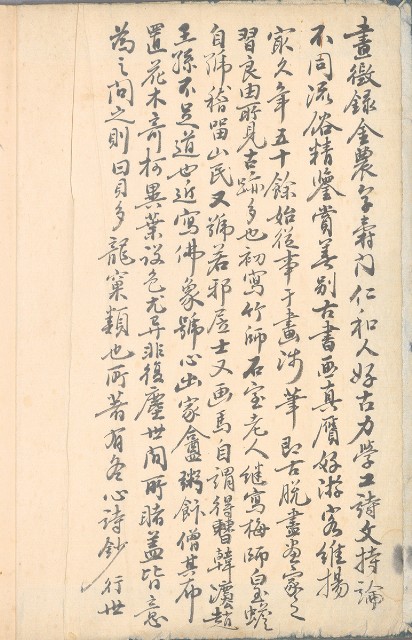 畫徵錄金農字壽門仁和人好古力學工詩文持論
不周流俗精鑒賞善別古書画真贋好游客維揚
家久年五十餘始從事于畫涉筆即古脫盡畫家之
習良由所見古跡多也初寫竹師石室老人繼寫梅師白玉蟾
自號稽留山民又號若邪居士又画馬自謂得曹韓法趙
王孫不足道也近寫佛象號心出家盦粥飯僧其布
置花木奇柯異葉設色尤异非復塵世間所睹蓋皆意
為之問之則曰貝多龍窠類也所著有冬心詩鈔行世